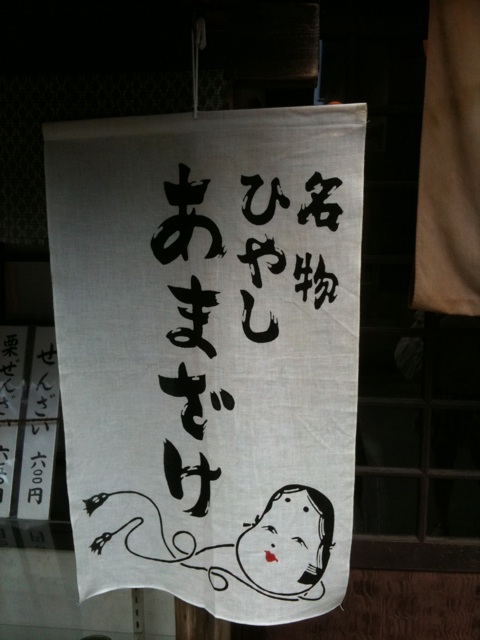 名物
ひやし
あまざけ
せんざい 六〇〇円
栗ぜんざい 六五〇円